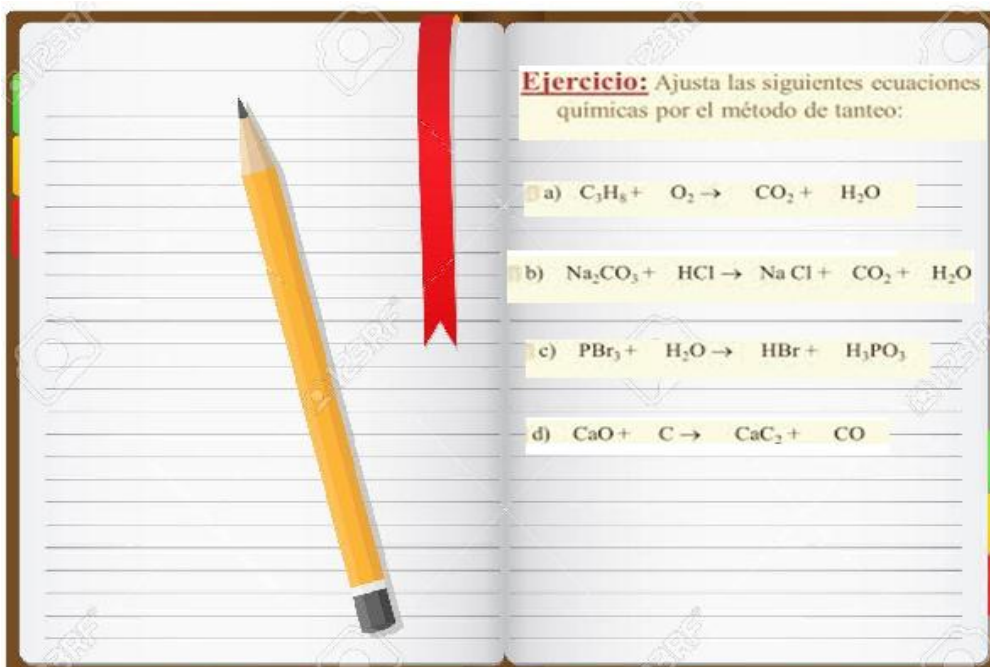 Ejercicio: Ajusta las siguientes ecuaciones
químicas por el método de tanteo:
a) C₃H₈ + O₂ → CO₂ + H₂O
b) Na₂CO₃ + HCl → Na Cl + CO₂ + H₂O
c) PBr₃ + H₂O → HBr + H₃PO₃
d) CaO + C → CaC₂ + CO
123RF
123RF
123RF
123RF